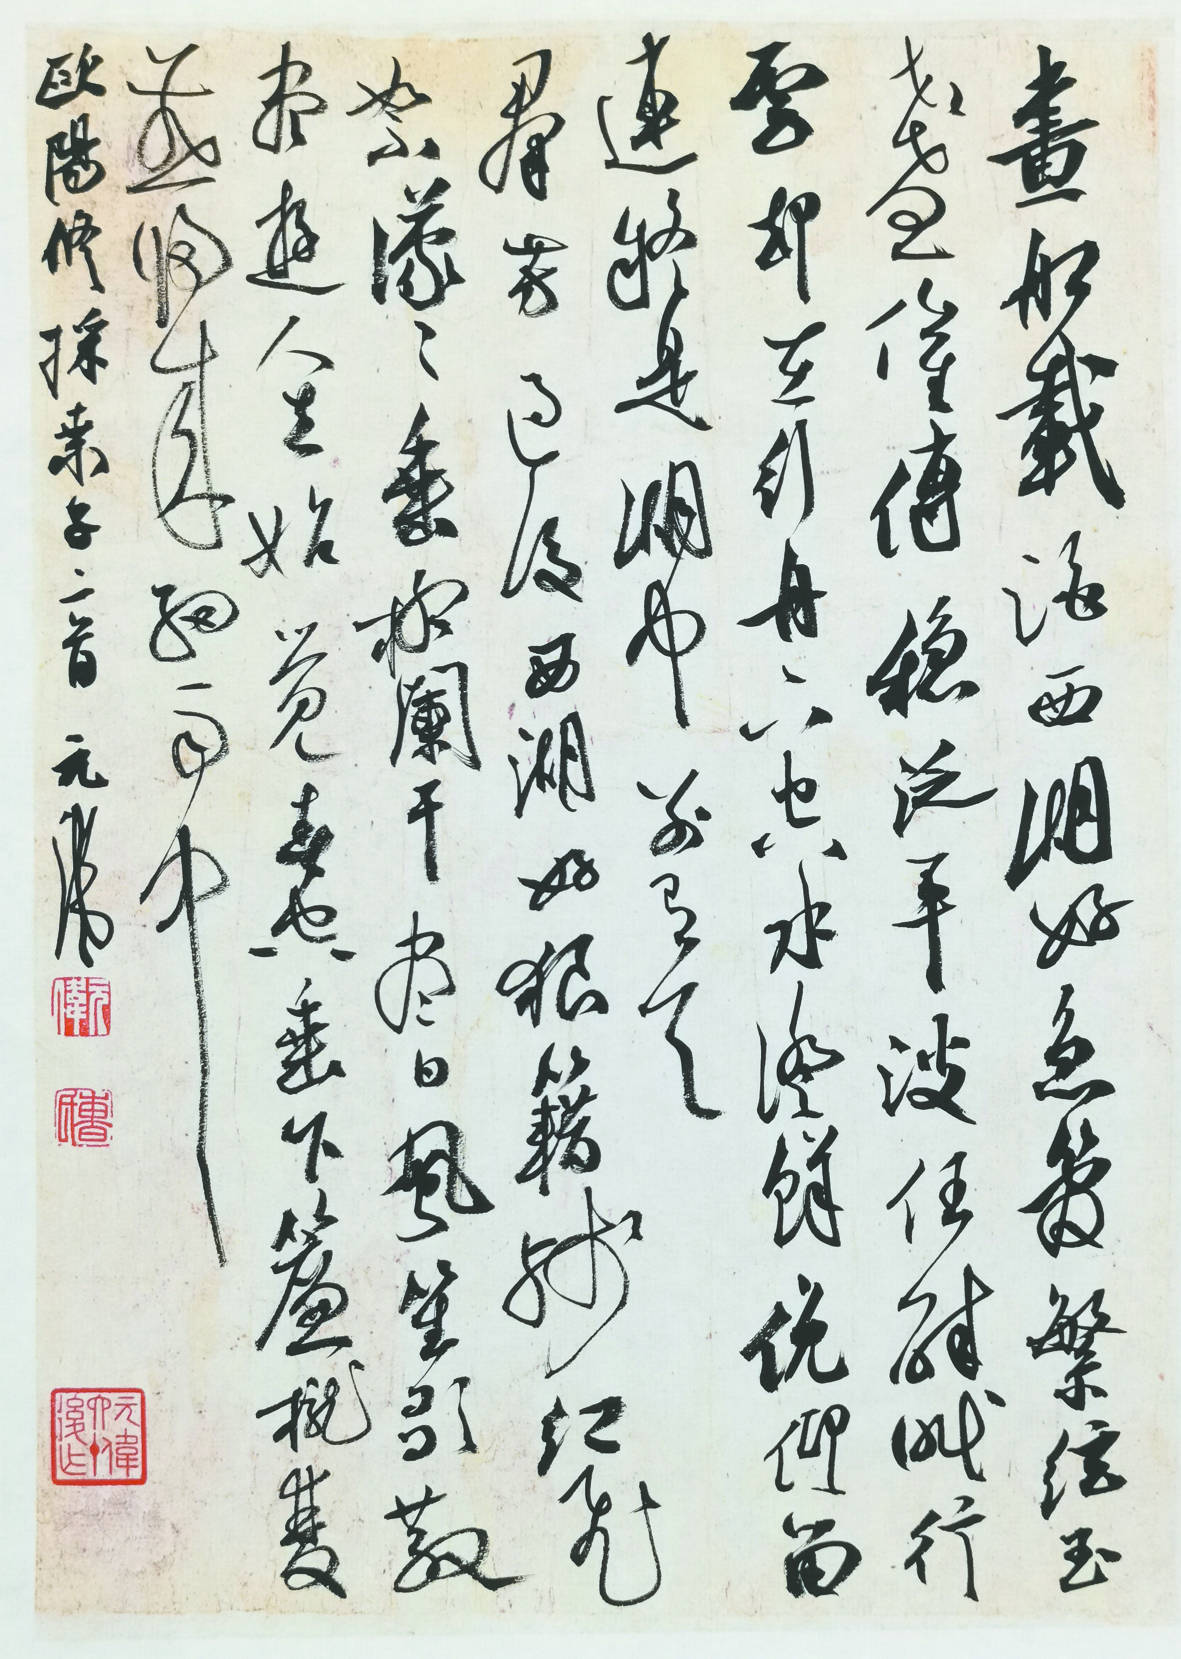 畫船載酒西湖好急管繁弦玉
盞催傳穩泛平波任醉眠行
雲却在行舟下空水澄鮮俛仰留
連疑是湖中別有天
羣芳過後西湖好狼籍殘紅飛
絮濛〻垂柳瀾干盡日風笙歌散
盡遊人去始覺春空垂下簾櫳雙
燕歸來細雨中
歐陽修採桑子二首 元偉
元偉